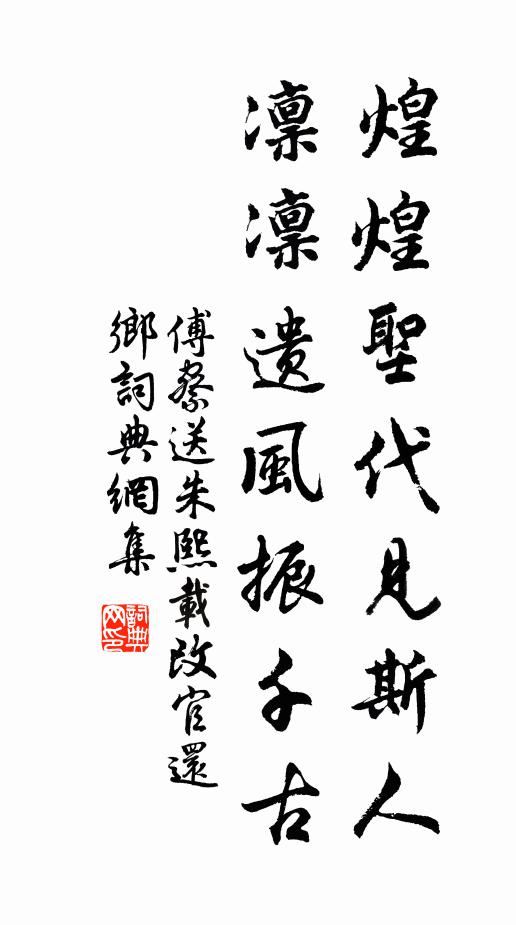 煌煌聖代見斯人
凜凜遺風振千古
傅察送朱熙載改官還
鄉詞典網集
詞典
网印